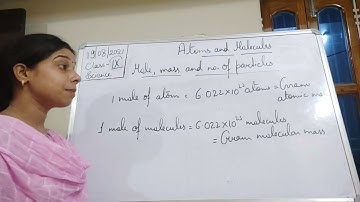 19/08/2021
Class- IX
Science
Atoms and Molecules
Mole, mass and no. of particles
1 mole of atom = 6.022×10²³ atoms = Gram
atomic
1 mole of molecules = 6.022×10²³ molecules
= Gram molecular mass